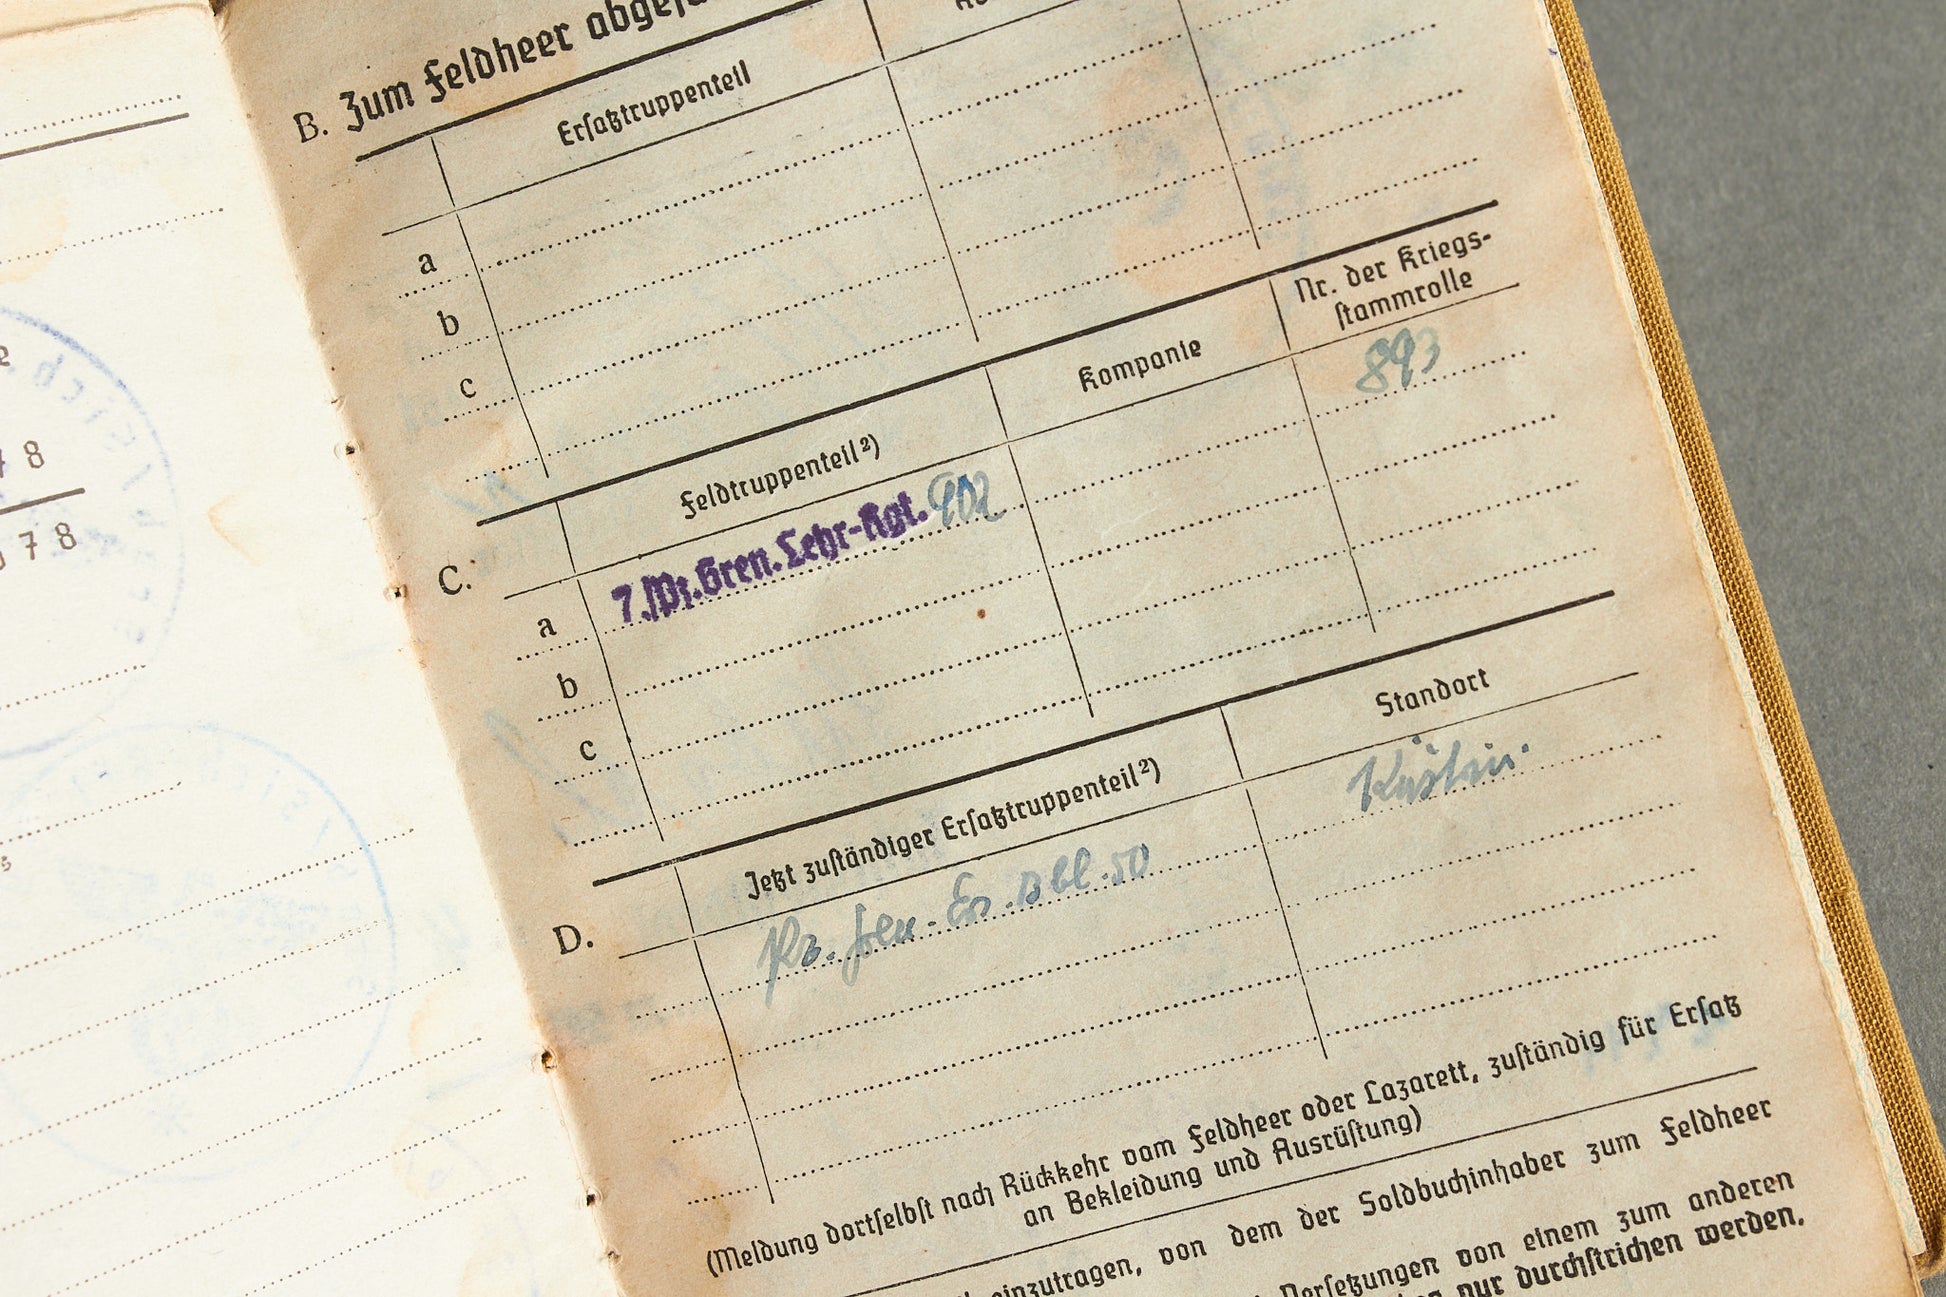 8
78
B. Zum Feldheer
Ersatztruppenteil
a
b
c
C.
Feldtruppenteil²)
Kompanie
Nr. der Kriegs-
stammrolle
a
7./Pz.Gren.Lehr-Rgt. 902
893
b
c
D.
Jetzt zuständiger Ersatztruppenteil²)
Standort
Pz. Gren. Ers. Btl. 50
Küstrin.
(Meldung dortselbst nach Rückkehr vom Feldheer oder Lazarett, zuständig für Ersatz
an Bekleidung und Ausrüstung)
einzutragen, von dem der Soldbuchinhaber zum Feldheer
Versetzungen von einem zum anderen
nur durchstrichen werden.